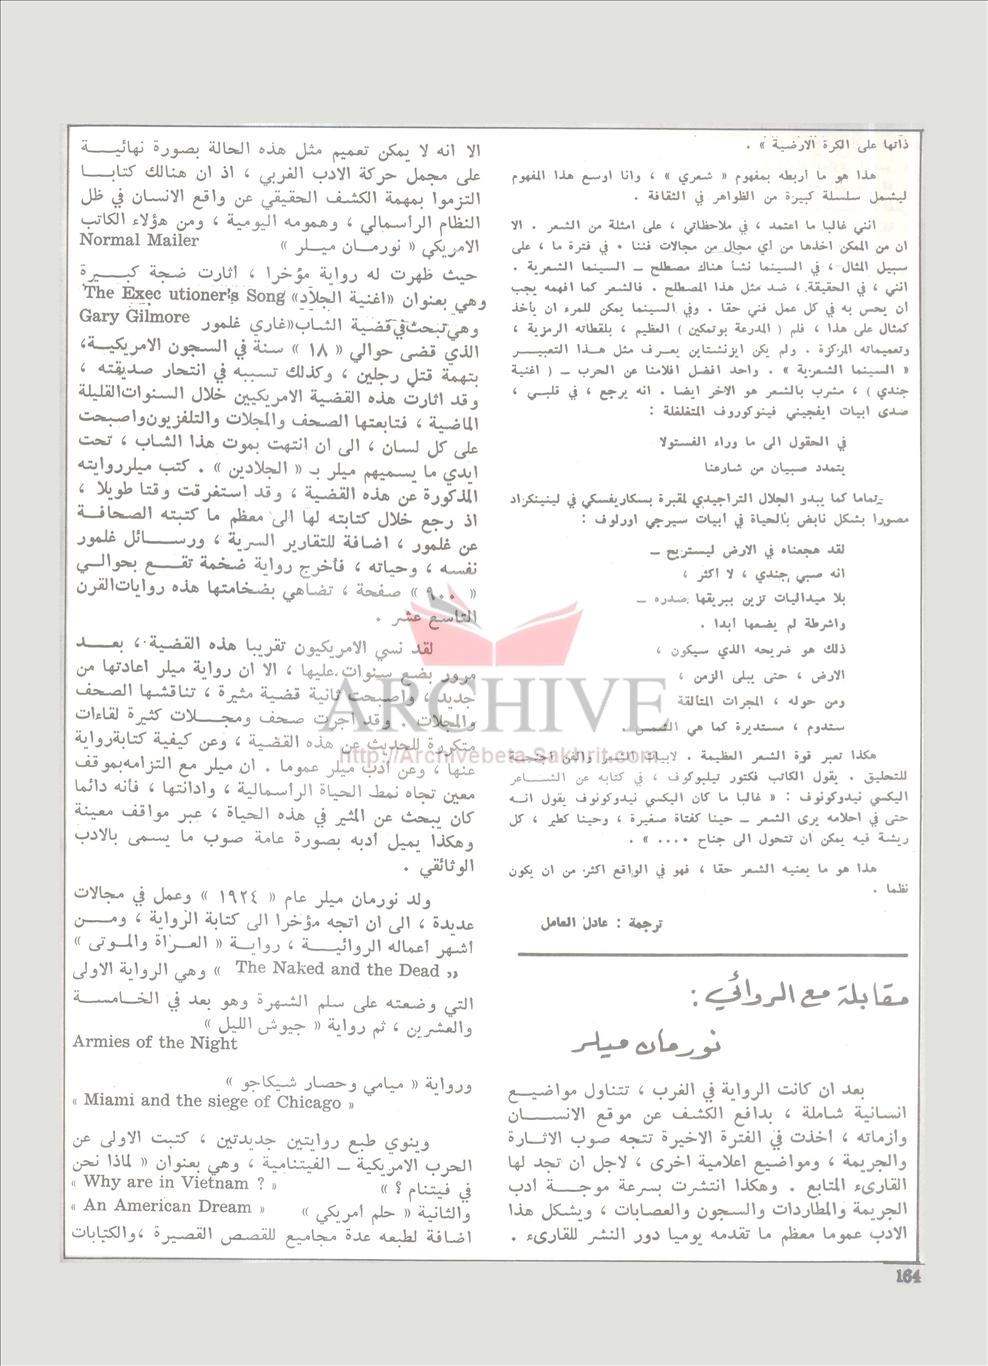 ذاتها على الكرة الارضية » .
هذا هو ما أربطه بمفهوم « شعري » ، وانا اوسع هذا المفهوم
ليشمل سلسلة كبيرة من الظواهر في الثقافة .
انني غالبا ما اعتمد ، في ملاحظاتي ، على امثلة من الشعر . الا
ان من الممكن اخذها من أي مجال من مجالات فننا ٠ في فترة ما ، على
سبيل المثال ، في السينما نشأ هناك مصطلح ــ السينما الشعرية .
انني ، في الحقيقة ، ضد مثل هذا المصطلح . فالشعر كما افهمه يجب
أن يحس به في كل عمل فني حقا . وفي السينما يمكن للمرء ان يأخذ
كمثال على هذا ، فلم ( المدرعة بوتمكين ) العظيم ، بلقطاته الرمزية ،
وتعميماته المركزة . ولم يكن ايزنشتاين يعرف مثل هذا التعبير
« السينما الشعرية » . واحد افضل افلامنا عن الحرب ــ ( اغنية
جندي ) ، مشرب بالشعر هو الاخر ايضا . انه يرجع ، في قلبي ،
صدى ابيات ايفجيني فينوكوروف المتغلغلة :
في الحقول الى ما وراء الفستولا
يتمدد صبيان من شارعنا
تماما كما يبدو الجلال التراجيدي لمقبرة بسكاريفسكي في لينينكراد
مصورا بشكل نابض بالحياة في أبيات سيرجي اورلوف :
لقد هجعناه في الارض ليستريح ــ
انه صبي جندي ، لا اكثر ،
بلا ميداليات تزين ببريقها صدره ــ
واشرطة لم يضعها أبدا .
ذلك هو ضريحه الذي سيكون ،
الارض ، حتى يبلى الزمن ،
ومن حوله ، المجرات المتألقة
ستدوم ، مستديرة كما هي الشمس .
هكذا تعبر قوة الشعر العظيمة . لابيات الشعر والفن اجنحة
للتحليق . يقول الكاتب فكتور تيلبوكوف ، في كتابه عن الشاعر
اليكسي نيدوكونوف : « غالبا ما كان اليكسي نيدوكونوف يقول انه
حتى في احلامه يرى الشعر ــ حينا كفتاة صغيرة ، وحينا كطير ، كل
ريشة فيه يمكن ان تتحول الى جناح ٠٠٠٠ » .
هذا هو ما يعنيه الشعر حقا ، فهو في الواقع اكثر من ان يكون
نظما .
ترجمة : عادل العامل
مقابلة مع الروائي :
نورمان ميلر
بعد ان كانت الرواية في الغرب ، تتناول مواضيع
انسانية شاملة ، بدافع الكشف عن موقع الانسان
وازماته ، أخذت في الفترة الاخيرة تتجه صوب الاثارة
والجريمة ، ومواضيع اعلامية اخرى ، لاجل ان تجد لها
القارىء المتابع . وهكذا انتشرت بسرعة موجة ادب
الجريمة والمطاردات والسجون والعصابات ، ويشكل هذا
الادب عموما معظم ما تقدمه يوميا دور النشر للقارىء .
الا انه لا يمكن تعميم مثل هذه الحالة بصورة نهائية
على مجمل حركة الادب الغربي ، اذ ان هنالك كتابا
التزموا بمهمة الكشف الحقيقي عن واقع الانسان في ظل
النظام الرأسمالي ، وهمومه اليومية ، ومن هؤلاء الكاتب
الامريكي « نورمان ميلر » Normal Mailer
حيث ظهرت له رواية مؤخرا ، اثارت ضجة كبيرة
وهي بعنوان «اغنية الجلاد» The Exec utioner's Song
وهي تبحث في قضية الشاب «غاري غلمور Gary Gilmore
الذي قضى حوالي « ١٨ » سنة في السجون الامريكية،
بتهمة قتل رجلين ، وكذلك تسببه في انتحار صديقته ،
وقد اثارت هذه القضية الامريكيين خلال السنوات القليلة
الماضية ، فتابعتها الصحف والمجلات والتلفزيون واصبحت
على كل لسان ، الى ان انتهت بموت هذا الشاب ، تحت
ايدي ما يسميهم ميلر بـ « الجلادين » . كتب ميلر روايته
المذكورة عن هذه القضية ، وقد إستغرقت وقتا طويلا ،
اذ رجع خلال كتابته لها الى معظم ما كتبته الصحافة
عن غلمور ، اضافة للتقارير السرية ، ورسائل غلمور
نفسه ، وحياته ، فأخرج رواية ضخمة تقع بحوالي
« ٩٠٠ » صفحة ، تضاهي بضخامتها هذه روايات القرن
التاسع عشر .
لقد نسي الامريكيون تقريبا هذه القضية ، بعد
مرور بضع سنوات عليها ، الا ان رواية ميلر اعادتها من
جديد ، واصبحت ثانية قضية مثيرة ، تناقشها الصحف
والمجلات . وقد أجرت صحف ومجلات كثيرة لقاءات
متكررة للحديث عن هذه القضية ، وعن كيفية كتابة رواية
عنها ، وعن أدب ميلر عموما . ان ميلر مع التزامه بموقف
معين تجاه نمط الحياة الرأسمالية ، وادانتها ، فأنه دائما
كان يبحث عن المثير في هذه الحياة ، عبر مواقف معينة
وهكذا يميل أدبه بصورة عامة صوب ما يسمى بالادب
الوثائقي .
ولد نورمان ميلر عام « ١٩٢٤ » وعمل في مجالات
عديدة ، الى ان اتجه مؤخرا الى كتابة الرواية ، ومن
أشهر اعماله الروائية ، رواية « العراة والموتى »
« The Naked and the Dead » وهي الرواية الاولى
التي وضعته على سلم الشهرة وهو بعد في الخامسة
والعشرين ، ثم رواية « جيوش الليل »
Armies of the Night
ورواية « ميامي وحصار شيكاجو »
« Miami and the siege of Chicago »
وينوي طبع روايتين جديدتين ، كتبت الاولى عن
الحرب الامريكية ــ الفيتنامية ، وهي بعنوان « لماذا نحن
في فيتنام ؟ » « Why are in Vietnam ? »
والثانية « حلم أمريكي » « An American Dream »
اضافة لطبعه عدة مجاميع للقصص القصيرة ، والكتابات
164
ARCHIVE
http://Archivebeta.Sakhrit.com